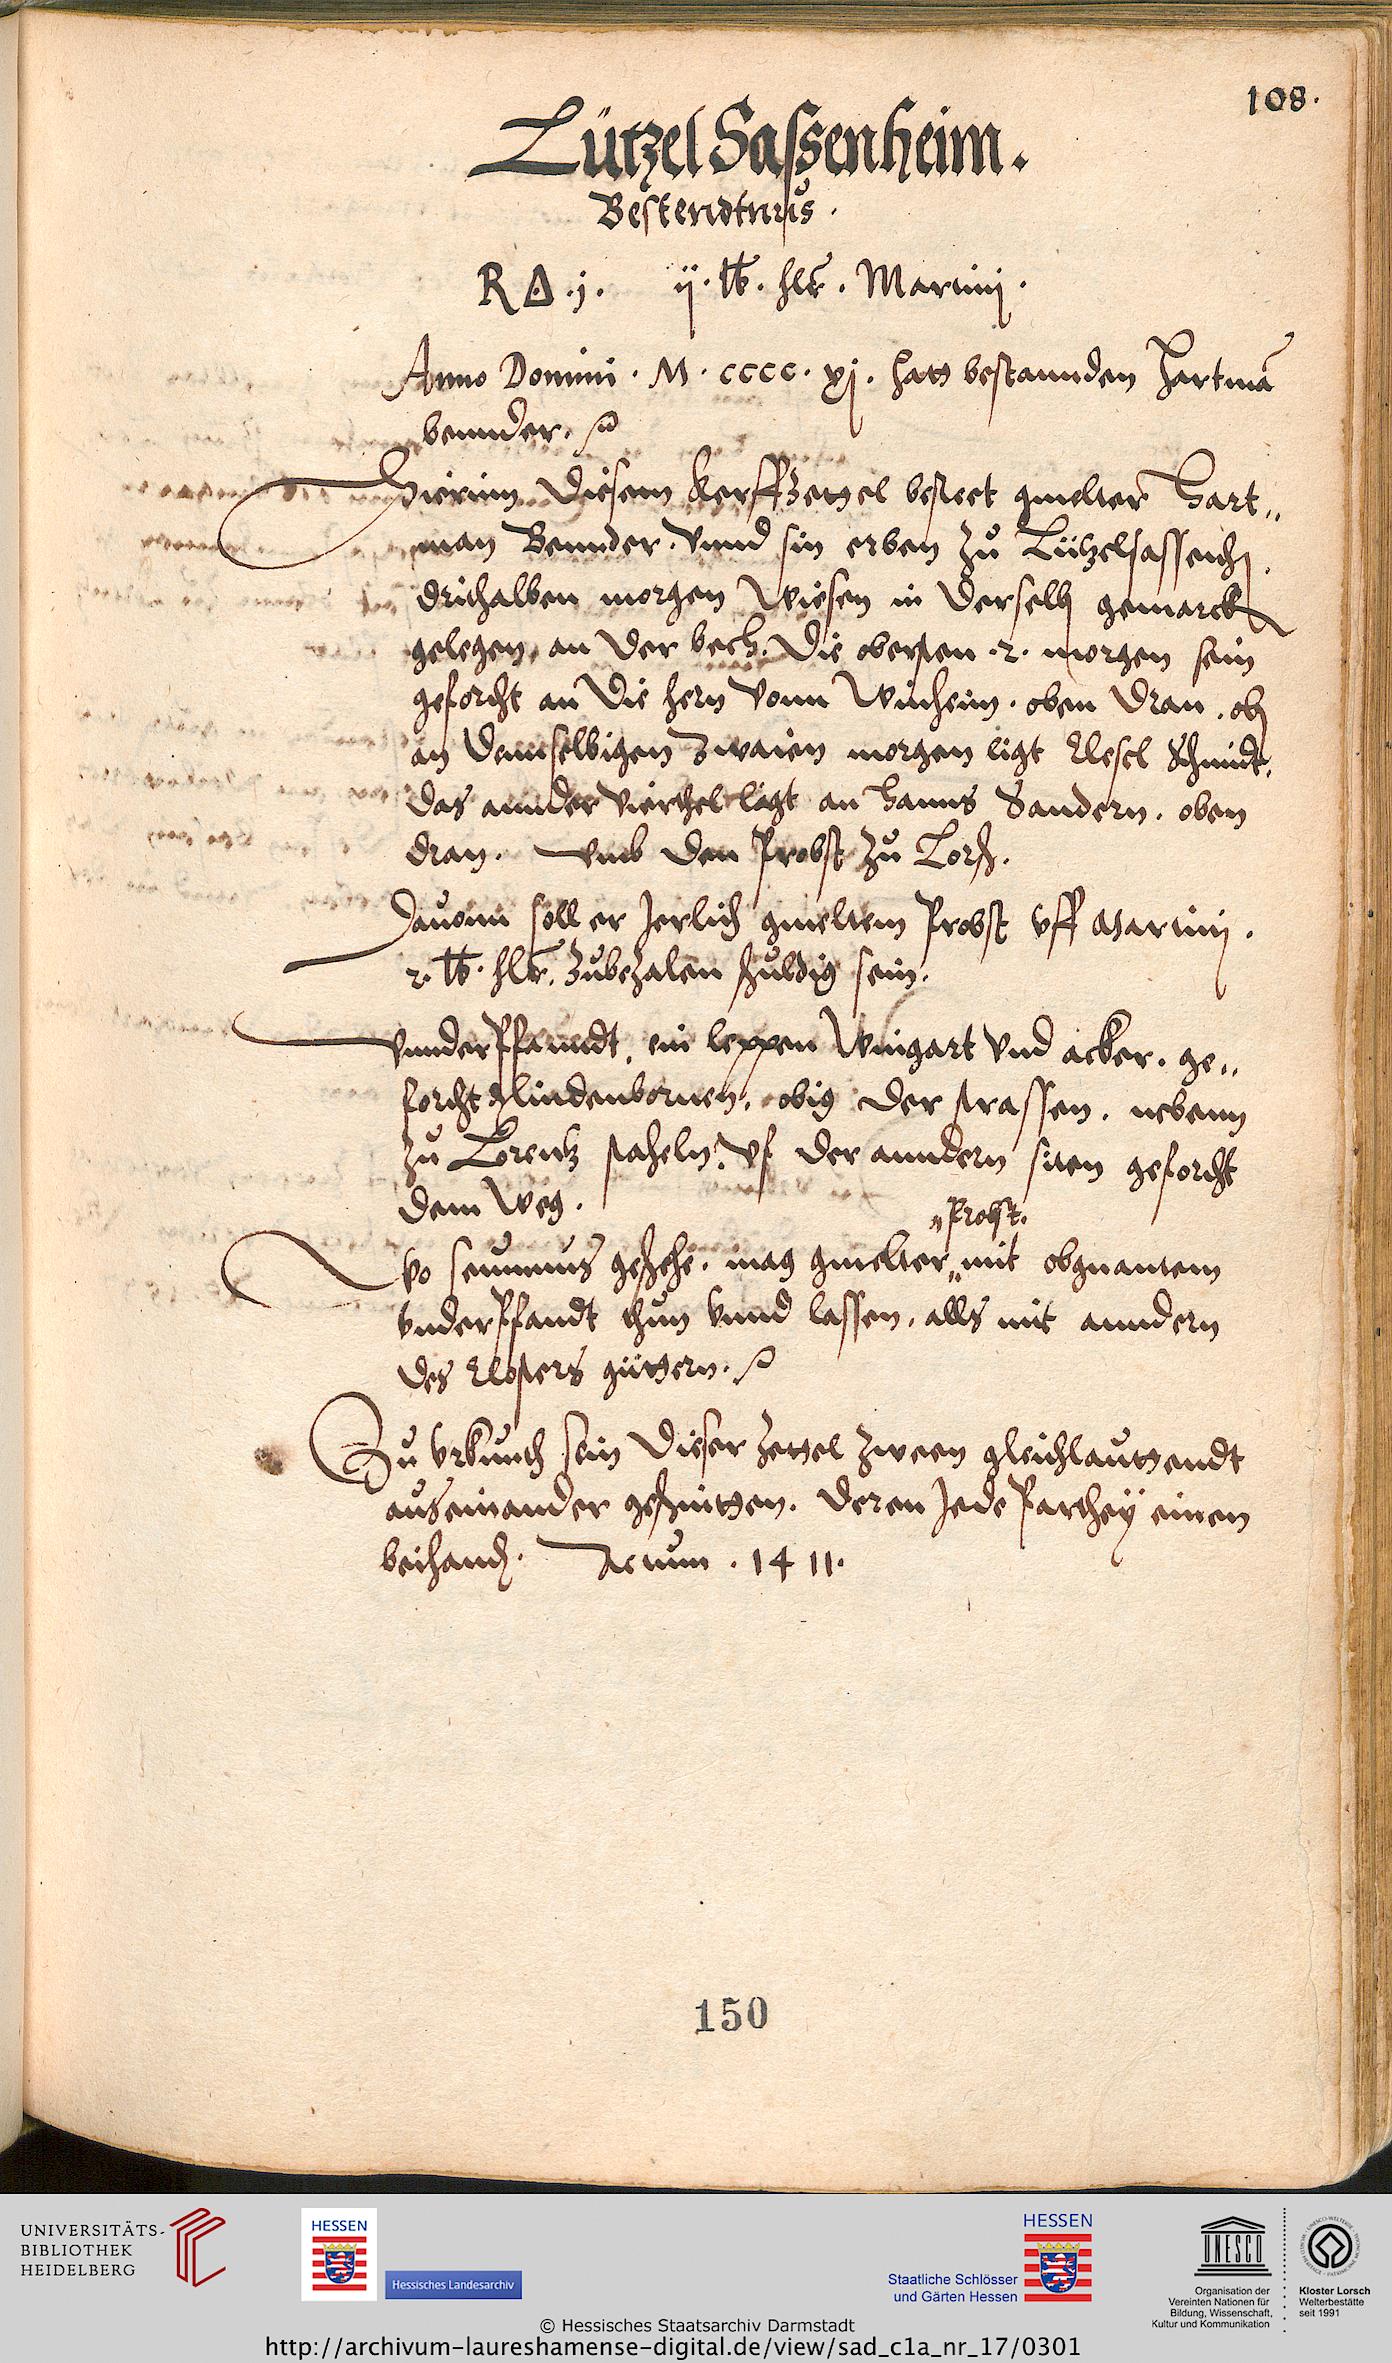 108.
Lützel Sassenheim.
Bestendtnus.
R Δ . j . ij . lb . hlr . Martinij .
Anno Domini . M . cccc . xj . hatt bestannden Hartmā
bennder .
Hierinn diesem kerffzettel besteet gmelter Hart„
man Bennder . vnnd sin erben zu Lützelsassench .
drithalben morgen Wiesen in derselb gemarck
gelegen, an der bech. die obersten .2. morgen sein
geforcht an die hern vonn Winheim . oben dran . ob
an demselbigen zwaien morgen ligt Clesel Schmidt,
das annder vierthel ligt an Hanns Sandern . oben
dran . vmb den Probst zu Lorsch .
Dauonn soll er Jerlich gmeltem Probst vff Martinij .
2 . lb . hlr . zubezalen schuldig sein .
Vnnderpfanndt, ein leppen Wingart vnd acker . ge„
forcht lindenbornen, obig der strassen . nebenn
zu Lorentz staheln . vf der anndern siten geforcht
dem Weg .
„Probst.
Wo seumnus geschehe . mag gmelter„ mit obgnantem
vnderpfandt thun vnnd lassen, alls mit anndern
des Closters güttern .
Zu vrkunth sein dieser zettel zween gleichlauttendt
auseinander geschnitten . deren Jede Parthey einen
beihand . Actum . 1411 .
150
UNIVERSITÄTS-
BIBLIOTHEK
HEIDELBERG
HESSEN
Hessisches Landesarchiv
HESSEN
Staatliche Schlösser
und Gärten Hessen
UNESCO
Organisation der
Vereinten Nationen für
Bildung, Wissenschaft,
Kultur und Kommunikation
Kloster Lorsch
Welterbestätte
seit 1991
© Hessisches Staatsarchiv Darmstadt
http://archivum-laureshamense-digital.de/view/sad_c1a_nr_17/0301